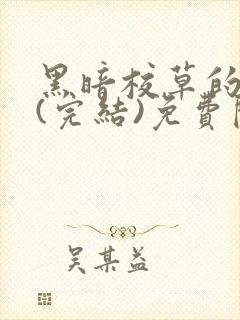 黑暗校草的
(完結)免費
吴某益